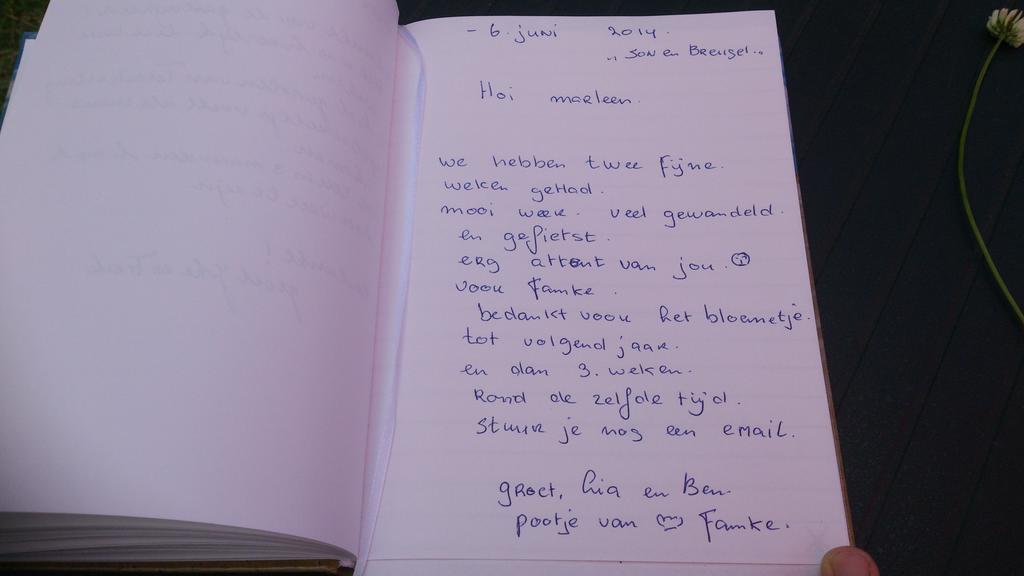 - 6. juni 2014.
,, SON en BREUGEL..
Hoi marleen.
we hebben twee fijne.
weken gehad.
mooi weer. veel gewandeld.
en gefietst.
erg attent van jou.
voor Famke.
bedankt voor het bloemetje.
tot volgend jaar.
en dan 3. weken.
Rond de zelfde tijd.
stuur je nog een EMAIL.
groet, Ria en Ben.
pootje van Famke.